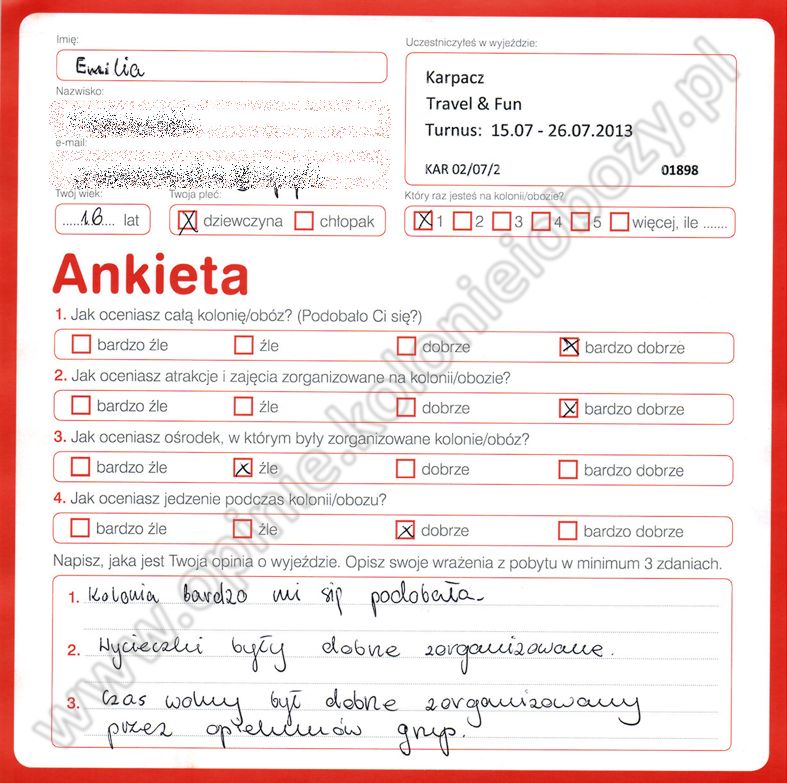 Imię:
Emilia
Nazwisko:
e-mail:
Twój wiek:
16 lat
Twoja płeć:
dziewczyna chłopak
Uczestniczyłeś w wyjeździe:
Karpacz
Travel & Fun
Turnus: 15.07 - 26.07.2013
KAR 02/07/2 01898
Który raz jesteś na kolonii/obozie?
1 2 3 4 5 więcej, ile .......
Ankieta
1. Jak oceniasz całą kolonię/obóz? (Podobało Ci się?)
bardzo źle źle dobrze bardzo dobrze
2. Jak oceniasz atrakcje i zajęcia zorganizowane na kolonii/obozie?
bardzo źle źle dobrze bardzo dobrze
3. Jak oceniasz ośrodek, w którym były zorganizowane kolonie/obóz?
bardzo źle źle dobrze bardzo dobrze
4. Jak oceniasz jedzenie podczas kolonii/obozu?
bardzo źle źle dobrze bardzo dobrze
Napisz, jaka jest Twoja opinia o wyjeździe. Opisz swoje wrażenia z pobytu w minimum 3 zdaniach.
1. Kolonia bardzo mi się podobała.
2. Wycieczki były dobrze zorganizowane.
3. Czas wolny był dobrze zorganizowany
przez opiekunów grup.
www.opinie.kolonieiobozy.pl